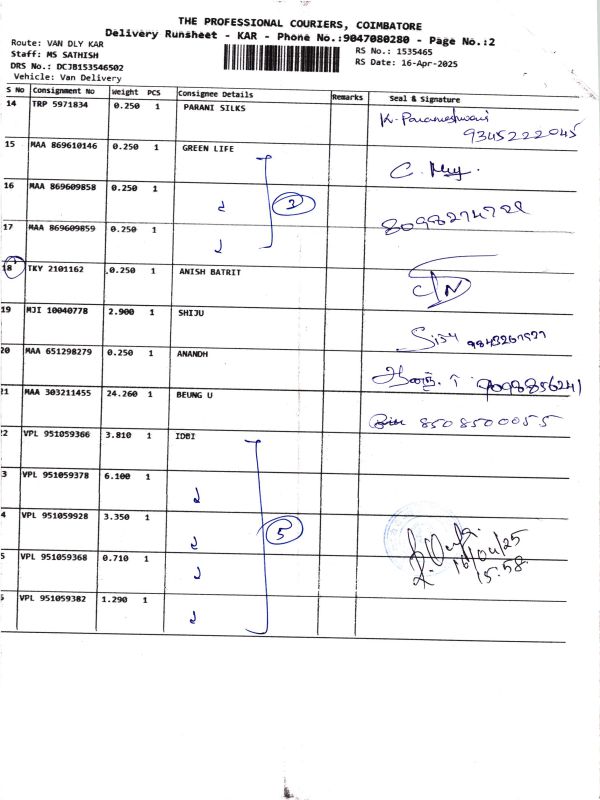 THE PROFESSIONAL COURIERS, COIMBATORE
Delivery Runsheet - KAR - Phone No.:9047080280 - Page No.:2
Route: VAN DLY KAR
Staff: MS SATHISH
DRS No.: DCJB153546502
Vehicle: Van Delivery
RS No.: 1535465
RS Date: 16-Apr-2025
S No Consignment No Weight PCS Consignee Details Remarks Seal & Signature
14 TRP 5971834 0.250 1 PARANI SILKS K. Parameshwari
9345222045
15 MAA 869610146 0.250 1 GREEN LIFE
16 MAA 869609858 0.250 1 3
8098274728
17 MAA 869609859 0.250 1
18 TKY 2101162 .0.250 1 ANISH BATRIT
19 MJI 10040778 2.900 1 SHIJU
20 MAA 651298279 0.250 1 ANANDH 9098856241
21 MAA 303211455 24.260 1 BEUNG U 8508500055
2 VPL 951059366 3.810 1 IDBI
3 VPL 951059378 6.100 1
4 VPL 951059928 3.350 1 5
16/04/25
15:58
5 VPL 951059368 0.710 1
VPL 951059382 1.290 1